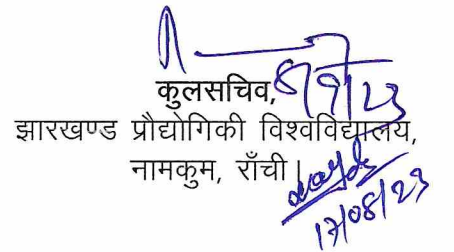 कुलसचिव,
झारखण्ड प्रौद्योगिकी विश्वविद्यालय,
नामकुम, राँची।
17/08/23